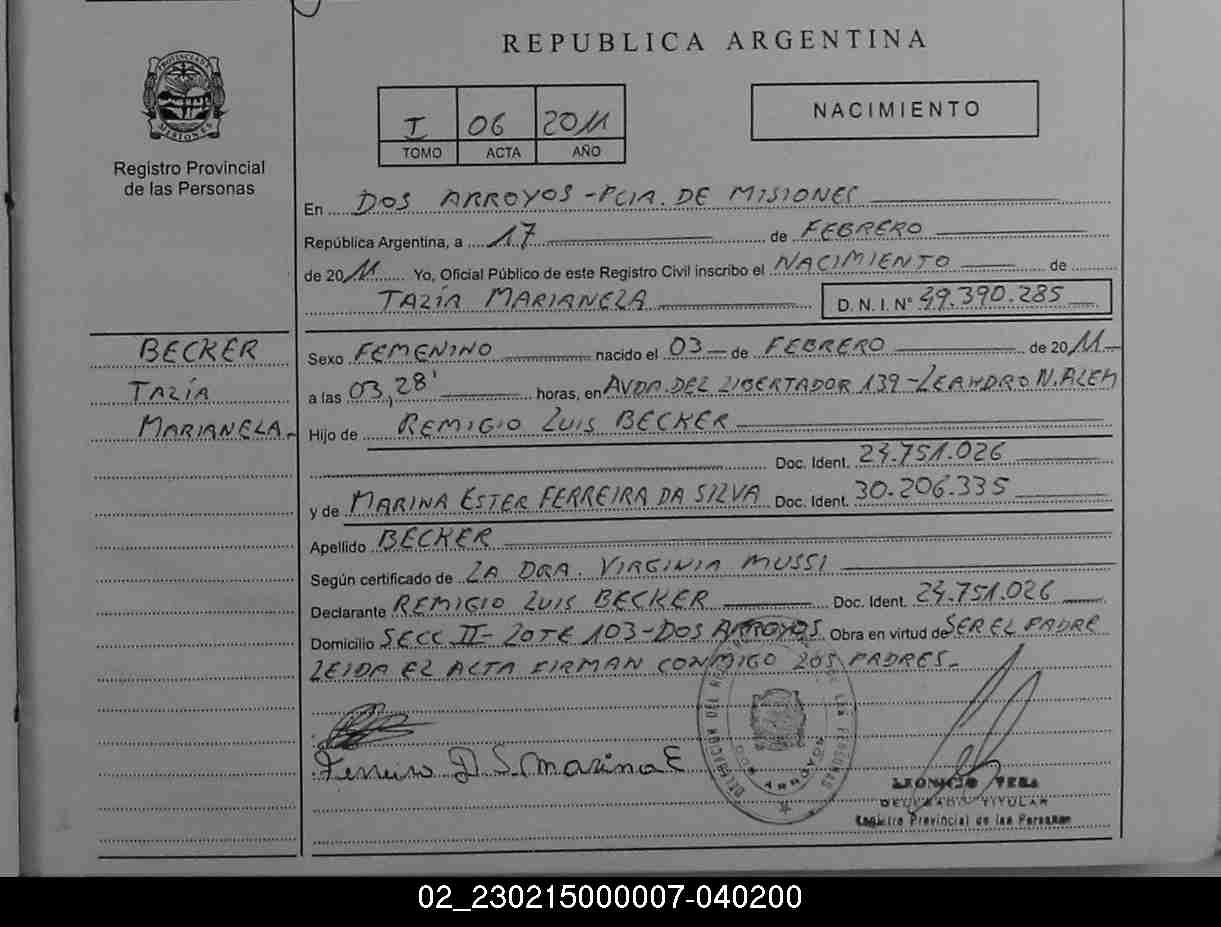 REPUBLICA ARGENTINA
PROVINCIA DE MISIONES
Registro Provincial
de las Personas
I 06 2011
TOMO ACTA AÑO
NACIMIENTO
En DOS ARROYOS - PCIA. DE MISIONES
República Argentina, a 17 de FEBRERO
de 2011 Yo, Oficial Público de este Registro Civil inscribo el NACIMIENTO de
TAZÍA MARIANELA D. N. I. N° 49.390.285
BECKER
TAZÍA
MARIANELA
Sexo FEMENINO nacido el 03 de FEBRERO de 2011
a las 03,28' horas, en AVDA. DEL LIBERTADOR 139 - LEANDRO N. ALEM
Hijo de REMIGIO LUIS BECKER
Doc. Ident. 24.751.026
y de MARINA ESTER FERREIRA DA SILVA Doc. Ident. 30.206.335
Apellido BECKER
Según certificado de LA DRA. VIRGINIA MUSSI
Declarante REMIGIO LUIS BECKER Doc. Ident. 24.751.026
Domicilio SECC II - LOTE 103 - DOS ARROYOS Obra en virtud de SER EL PADRE
LEIDA EL ACTA FIRMAN CONMIGO LOS PADRES.
Ferreira D. S. Marina E
DOS ARROYOS
LEONICIO VERA
DELEGADO TITULAR
Registro Provincial de las Personas
02_230215000007-040200